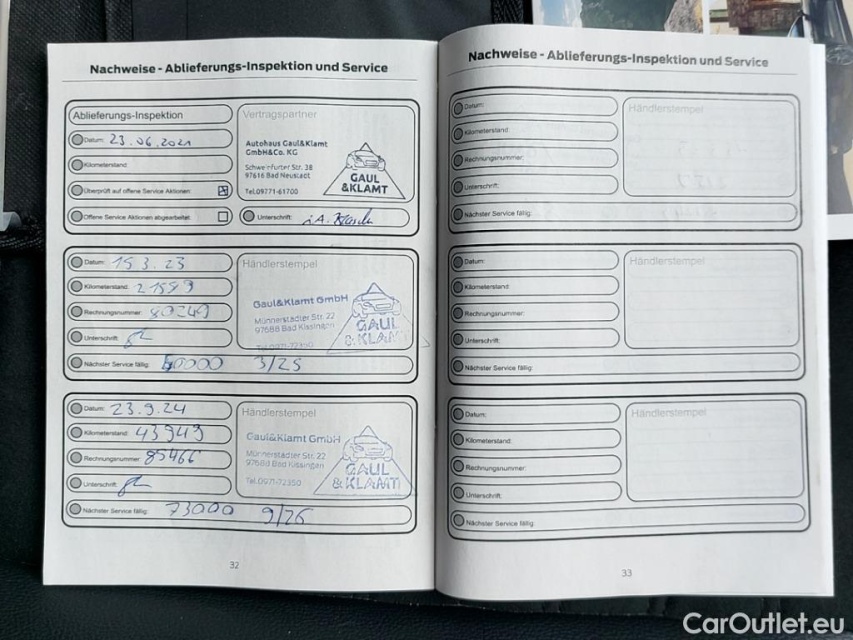 Nachweise - Ablieferungs-Inspektion und Service
Ablieferungs-Inspektion
Vertragspartner
Datum: 23.06.2021
Autohaus Gaul&Klamt
GmbH&Co. KG
Kilometerstand:
Schweinfurter Str. 38
97616 Bad Neustadt
GAUL
& KLAMT
Überprüft auf offene Service Aktionen:
Tel.09771-61700
Offene Service Aktionen abgearbeitet:
Unterschrift: i.A.
Datum: 15 3. 23
Händlerstempel
Kilometerstand: 21599
Gaul&Klamt GmbH
Rechnungsnummer: 80249
Münnerstädter Str. 22
97688 Bad Kissingen
GAUL
& KLAMT
Unterschrift:
Tel.0971-72350
Nächster Service fällig: 50000 3/25
Datum: 23.9.24
Händlerstempel
Kilometerstand: 43949
Gaul&Klamt GmbH
Rechnungsnummer: 85466
Münnerstädter Str. 22
97688 Bad Kissingen
GAUL
& KLAMT
Unterschrift:
Tel.0971-72350
Nächster Service fällig: 73000 9/26
32
Nachweise - Ablieferungs-Inspektion und Service
Datum:
Händlerstempel
Kilometerstand:
Rechnungsnummer:
Unterschrift:
Nächster Service fällig:
Datum:
Händlerstempel
Kilometerstand:
Rechnungsnummer:
Unterschrift:
Nächster Service fällig:
Datum:
Händlerstempel
Kilometerstand:
Rechnungsnummer:
Unterschrift:
Nächster Service fällig:
33
CarOutlet.eu